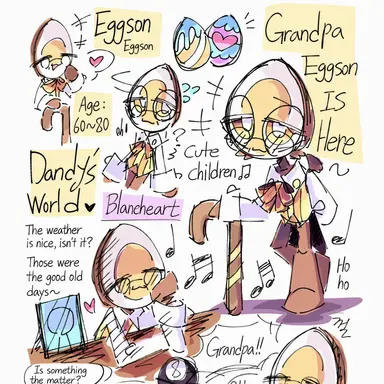 Eggson
Eggson
Grandpa
Eggson
IS
Here
Age:
60~80
Cute
children♫
Dandy's
World ♥
Blancheart
The weather
is nice, isn't it?
Those were
the good old
days~
Ho
ho
Grandpa!!
Is something
the matter?
8